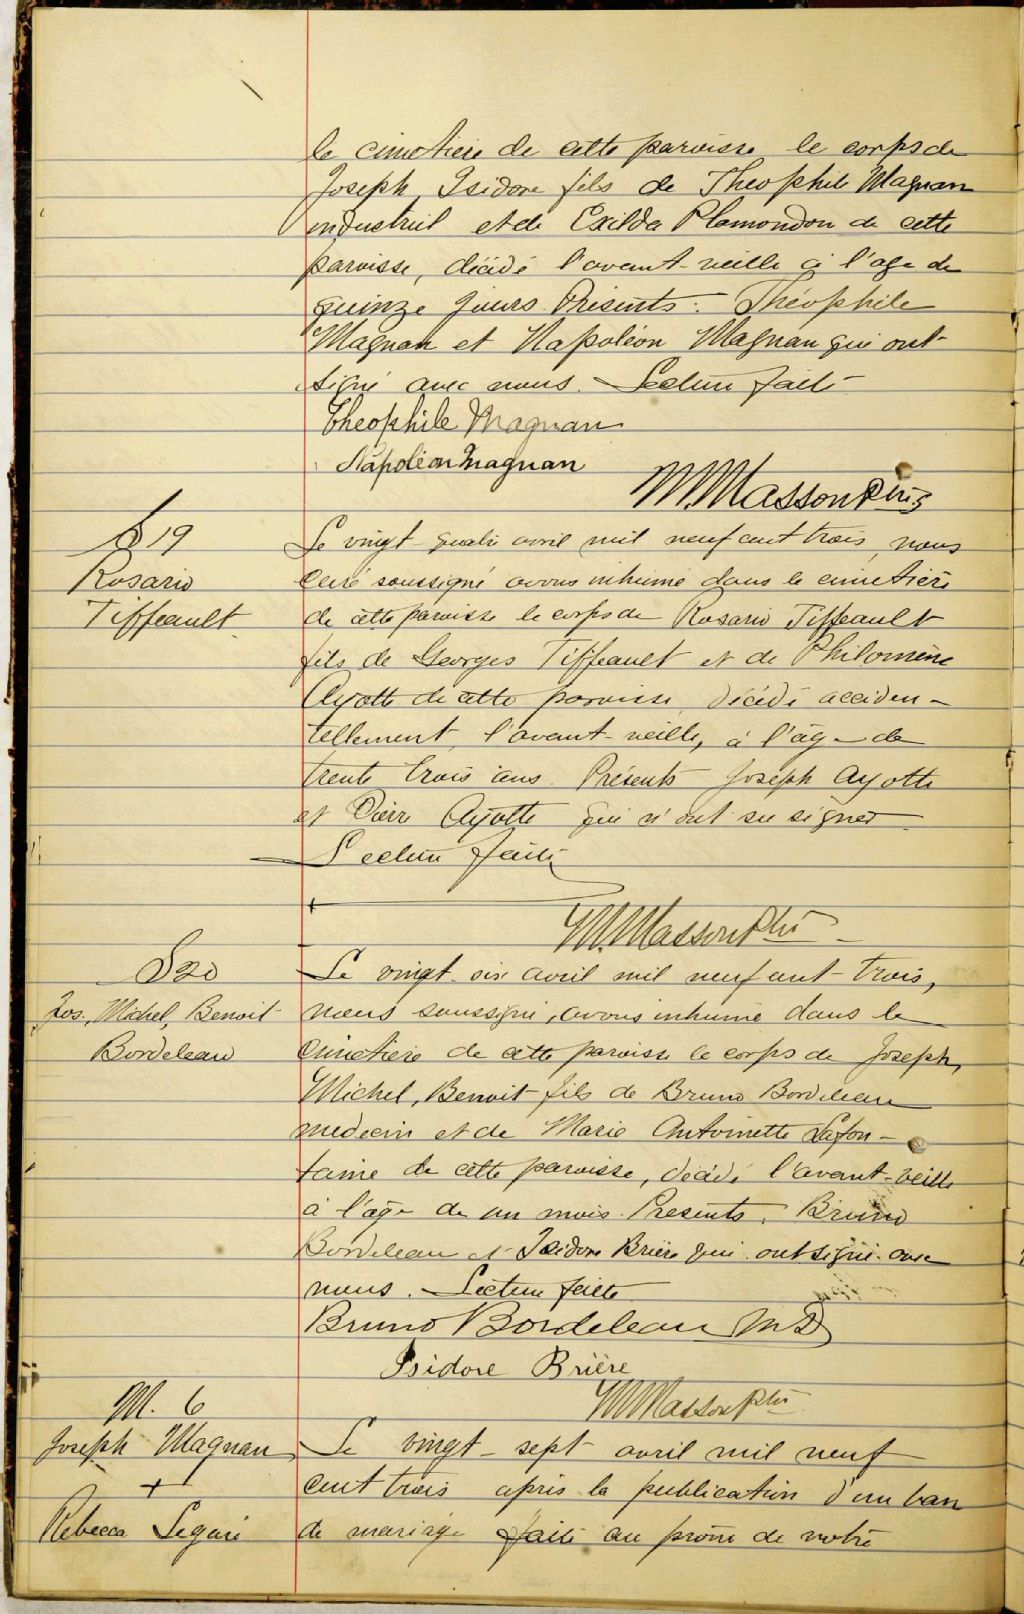 le cimetiere de cette paroisse le corps de
Joseph, Isidore fils de Theophile Magnan
industriel et de Exilda Plamondon de cette
paroisse, décédé l'avant-veille à l'age de
quinze jours. Présents: Théophile
Magnan et Napoléon Magnan qui ont
signé avec nous. Lecture faite
Theophile Magnan
Napoléon Magnan
M. Masson Ptre
S 19
Rosario
Tiffeault
Le vingt quatre avril mil neuf cent trois, nous
Curé soussigné avons inhumé dans le cimetière
de cette paroisse le corps de Rosario Tiffeault
fils de Georges Tiffeault et de Philomène
Ayotte de cette paroisse, décédé acciden-
tellement, l'avant-veille, à l'âge de
trente trois ans. Présents Joseph Ayotte
et Pierre Ayotte qui n'ont su signer
Lecture faite
M. Masson Ptre
S 20
Jos., Michel, Benoit
Bordeleau
Le vingt six avril mil neuf cent trois,
nous soussigné, avons inhumé dans le
cimetière de cette paroisse le corps de Joseph,
Michel, Benoit fils de Bruno Bordeleau
medecin et de Marie Antoinette Lafon-
taine de cette paroisse, décédé l'avant-veille
à l'âge de un mois. Presents: Bruno
Bordeleau et Isidore Brière qui ont signé avec
nous. Lecture faite
Bruno Bordeleau MD
Isidore Brière
M. Masson Ptre
M. 6
Joseph Magnan
+
Rebecca Legaré
Le vingt-sept avril mil neuf
cent trois après la publication d'un ban
de mariage faite au prône de notre